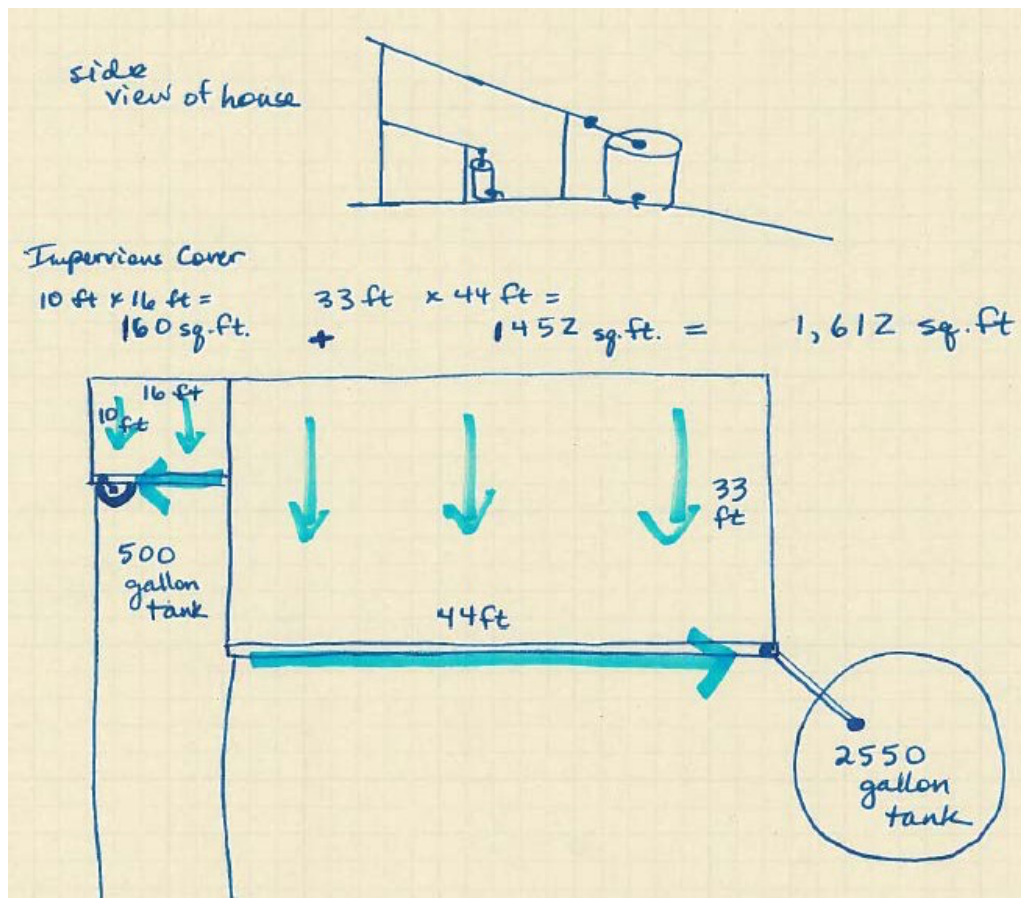 side
view of house
Impervious Cover
10 ft x 16 ft =
160 sq.ft.
+
33 ft x 44 ft =
1452 sq.ft. = 1,612 sq.ft
16 ft
10 ft
33
ft
500
gallon
tank
44ft
2550
gallon
tank